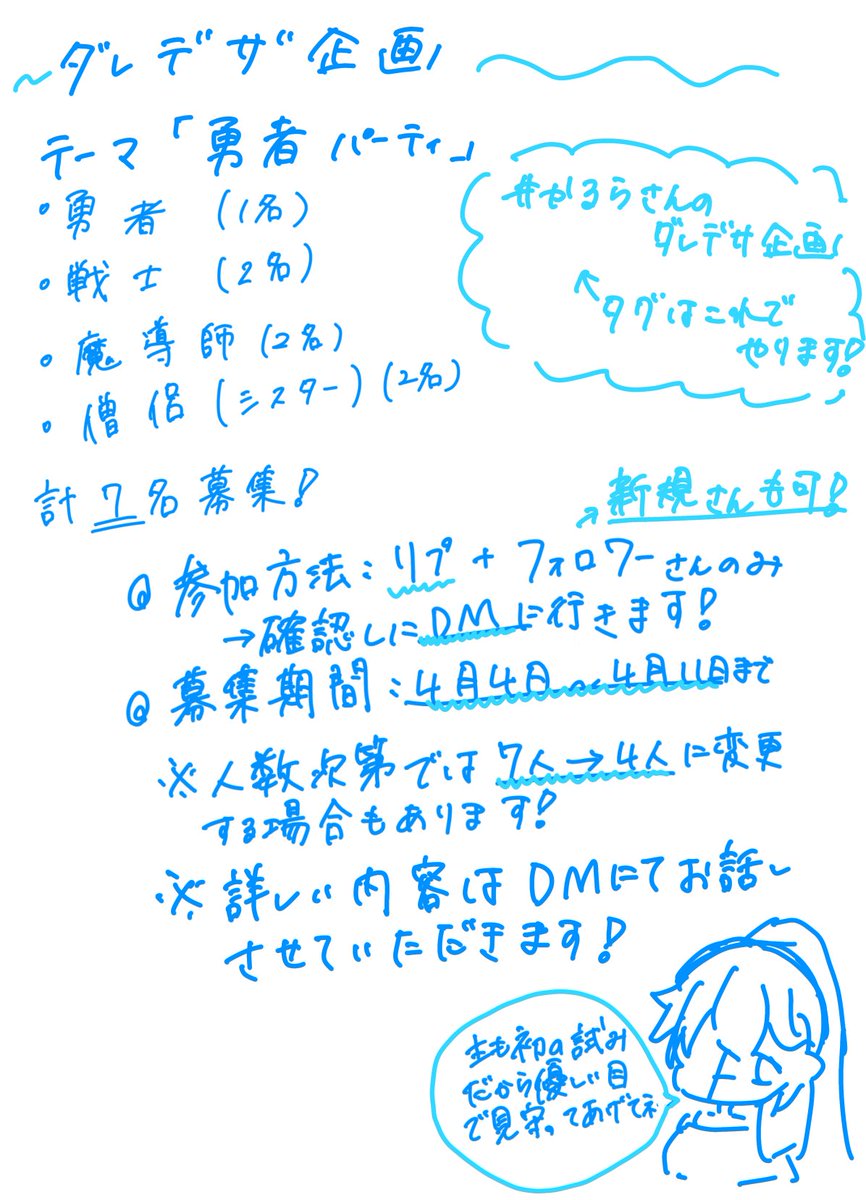 ～ダレデザ企画～
テーマ「勇者パーティ」
・勇者 (1名)
・戦士 (2名)
・魔導師 (2名)
・僧侶 (シスター) (2名)
計7名募集!
#かるらさんの
ダレデザ企画
↖タグはこれで
やります!
→新規さんも可!
@ 参加方法:リプ + フォロワーさんのみ
→確認しにDMに行きます!
@ 募集期間:4月4日〜4月11日まで
※人数次第では7人→4人に変更
する場合もあります!
※詳しい内容はDMにてお話し
させていただきます!
主も初の試み
だから優しい目
で見守ってあげてネ